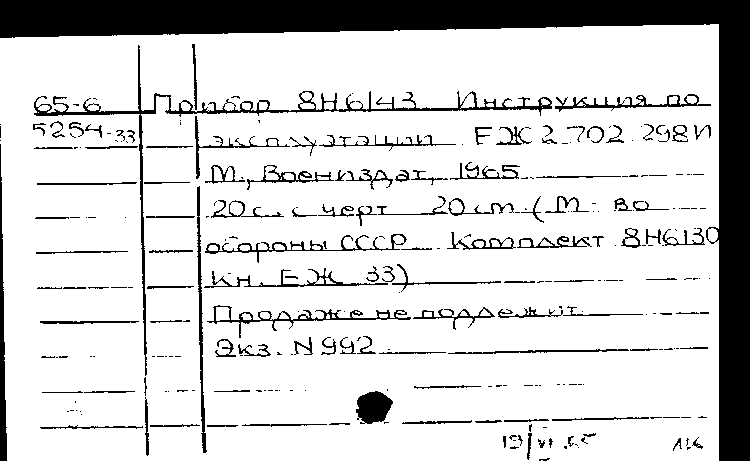 65-6 Прибор 8Н6143 Инструкция по
5254-33 эксплуатации ЕЖ2.702.298И
М., Воениздат, 1965
20 с. с черт 20 см. (М-во
обороны СССР Комплект 8Н6130
Кн. ЕЖ 33)
Продаже не подлежит
Экз. N 992
19/VI 65